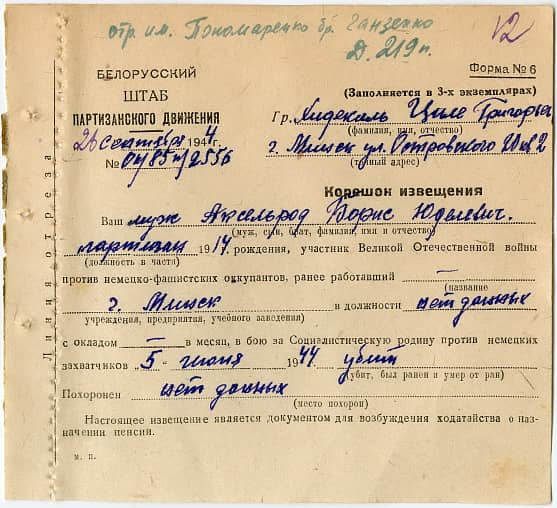 отр. им. Пономаренко бр. Ганзенко
Д. 219 п.
V2
Форма № 6
БЕЛОРУССКИЙ
ШТАБ
ПАРТИЗАНСКОГО ДВИЖЕНИЯ
26 сентября 1944 г.
№ 04/85 п/2556
(Заполняется в 3-х экземплярах)
Гр. Хидекель Циле Григорьев
(фамилия, имя, отчество)
г. Минск ул. Островского
(точный адрес)
Линия отреза
Корешок извещения
Ваш муж Аксельрод Борис Юделевич.
(муж, сын, брат, фамилия имя и отчество)
партизан 1914. рождения, участник Великой Отечественной войны
(должность в части)
против немецко-фашистских оккупантов, ранее работавший —
(название
г. Минск в должности нет данных
учреждения, предприятия, учебного заведения)
с окладом — в месяц, в бою за Социалистическую родину против немецких
захватчиков „5 - июня 1944 убит
(убит, был ранен и умер от ран)
Похоронен нет данных
(место похорон)
Настоящее извещение является документом для возбуждения ходатайства о наз-
начении пенсии.
м. п.